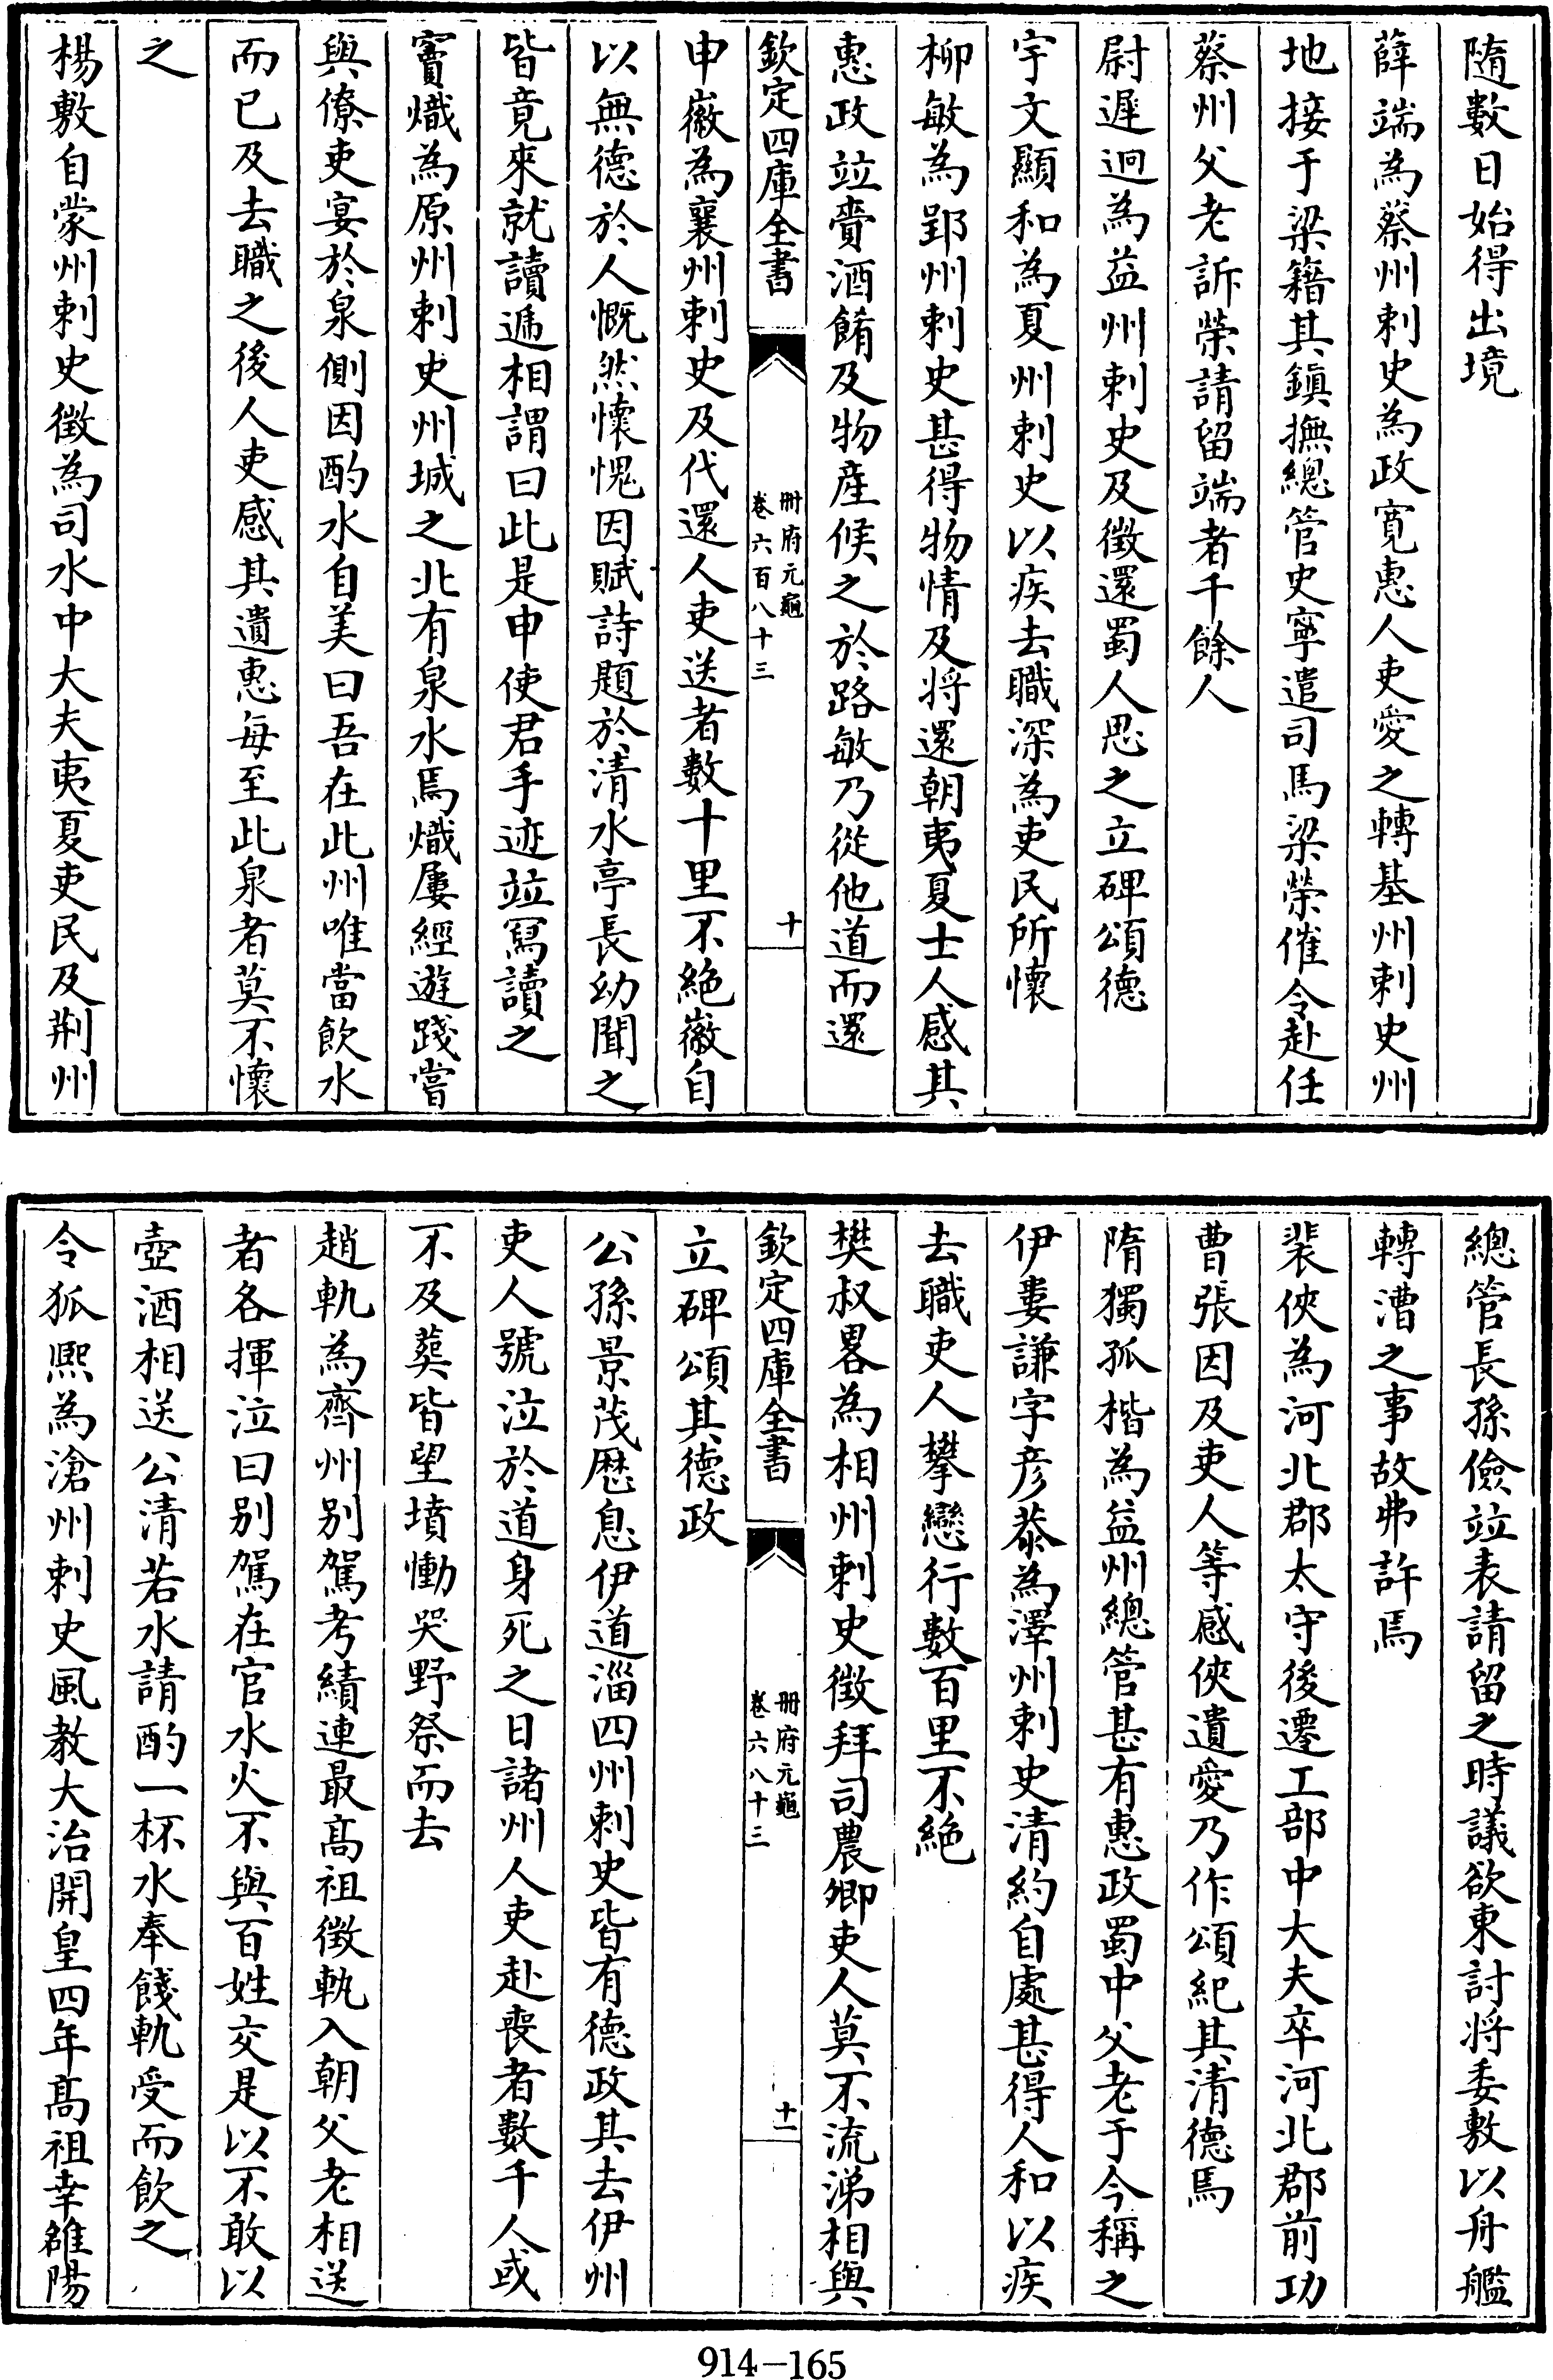 隨數日始得出境
薛端為蔡州刺史為政寛惠人吏愛之轉基州刺史州
地接于梁籍其鎮撫總管史寧遣司馬梁榮催令赴任
蔡州父老訴榮請留端者千餘人
尉遲迥為益州刺史及徵還蜀人思之立碑頌德
宇文顯和為夏州刺史以疾去職深為吏民所懷
柳敏為郢州刺史甚得物情及将還朝夷夏士人感其
惠政竝賫酒餚及物産候之於路敏乃從他道而還
欽定四庫全書
冊府元龜
卷六百八十三
十
申徽為襄州刺史及代還人吏送者數十里不絶徽自
以無德於人慨然懷愧因賦詩題於清水亭長幼聞之
皆竟來就讀遞相謂曰此是申使君手迹竝冩讀之
竇熾為原州刺史州城之北有泉水焉熾屢經遊踐嘗
與僚吏宴於泉側因酌水自美曰吾在此州唯當飲水
而已及去職之後人吏感其遺惠每至此泉者莫不懷
之
楊敷自蒙州刺史徵為司水中大夫夷夏吏民及荆州
總管長孫儉竝表請留之時議欲東討将委敷以舟艦
轉漕之事故弗許焉
裴俠為河北郡太守後遷工部中大夫卒河北郡前功
曹張因及吏人等感俠遺愛乃作頌紀其清德焉
隋獨孤楷為益州總管甚有惠政蜀中父老于今稱之
伊婁謙字彦恭為澤州刺史清約自處甚得人和以疾
去職吏人攀戀行數百里不絶
樊叔畧為相州刺史徵拜司農卿吏人莫不流涕相與
欽定四庫全書
冊府元龜
卷六八十三
十一
立碑頌其德政
公孫景茂歴息伊道淄四州刺史皆有德政其去伊州
吏人號泣於道身死之日諸州人吏赴喪者數千人或
不及葬皆望墳慟哭野祭而去
趙軌為齊州别駕考績連最髙祖徴軌入朝父老相送
者各揮泣曰别駕在官水火不與百姓交是以不敢以
壺酒相送公清若水請酌一杯水奉餞軌受而飲之
令狐熙為滄州刺史風教大治開皇四年髙祖幸雒陽
914-165